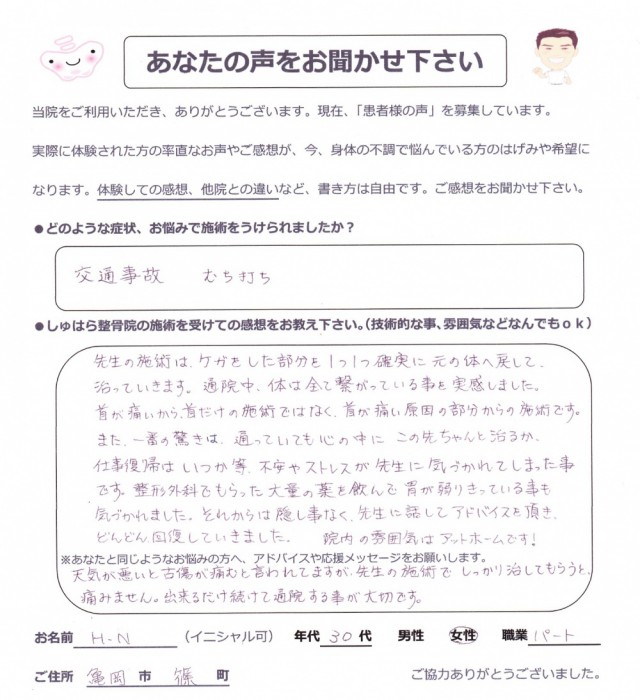 あなたの声をお聞かせ下さい
当院をご利用いただき、ありがとうございます。現在、「患者様の声」を募集しています。
実際に体験された方の率直なお声やご感想が、今、身体の不調で悩んでいる方のはげみや希望に
なります。体験しての感想、他院との違いなど、書き方は自由です。ご感想をお聞かせ下さい。
●どのような症状、お悩みで施術をうけられましたか？
交通事故　むち打ち
●しゅはら整骨院の施術を受けての感想をお教え下さい。（技術的な事、雰囲気などなんでもｏｋ）
先生の施術は、ケガをした部分を1つ1つ確実に元の体へ戻して、
治っていきます。通院中、体は全て繋がっている事を実感しました。
首が痛いから、首だけの施術ではなく、首が痛い原因の部分からの施術です。
また、一番の驚きは、通っていても心の中に この先ちゃんと治るか、
仕事復帰は いつか等、不安やストレスが 先生に 気づかれてしまった事
です。整形外科でもらった 大量の薬を飲んで 胃が弱りきっている事も
気づかれました。それからは 隠し事なく、先生に話してアドバイスを頂き、
どんどん回復していきました。 院内の雰囲気は アットホームです!
※あなたと同じようなお悩みの方へ、アドバイスや応援メッセージをお願いします。
天気が悪いと古傷が痛むと言われてますが、先生の施術で しっかり治してもらうと、
痛みません。出来るだけ続けて通院する事が大切です。
お名前 H-N （イニシャル可） 年代 30 代 男性 女性 職業 パート
ご住所 亀岡 市 篠 町 ご協力ありがとうございました。